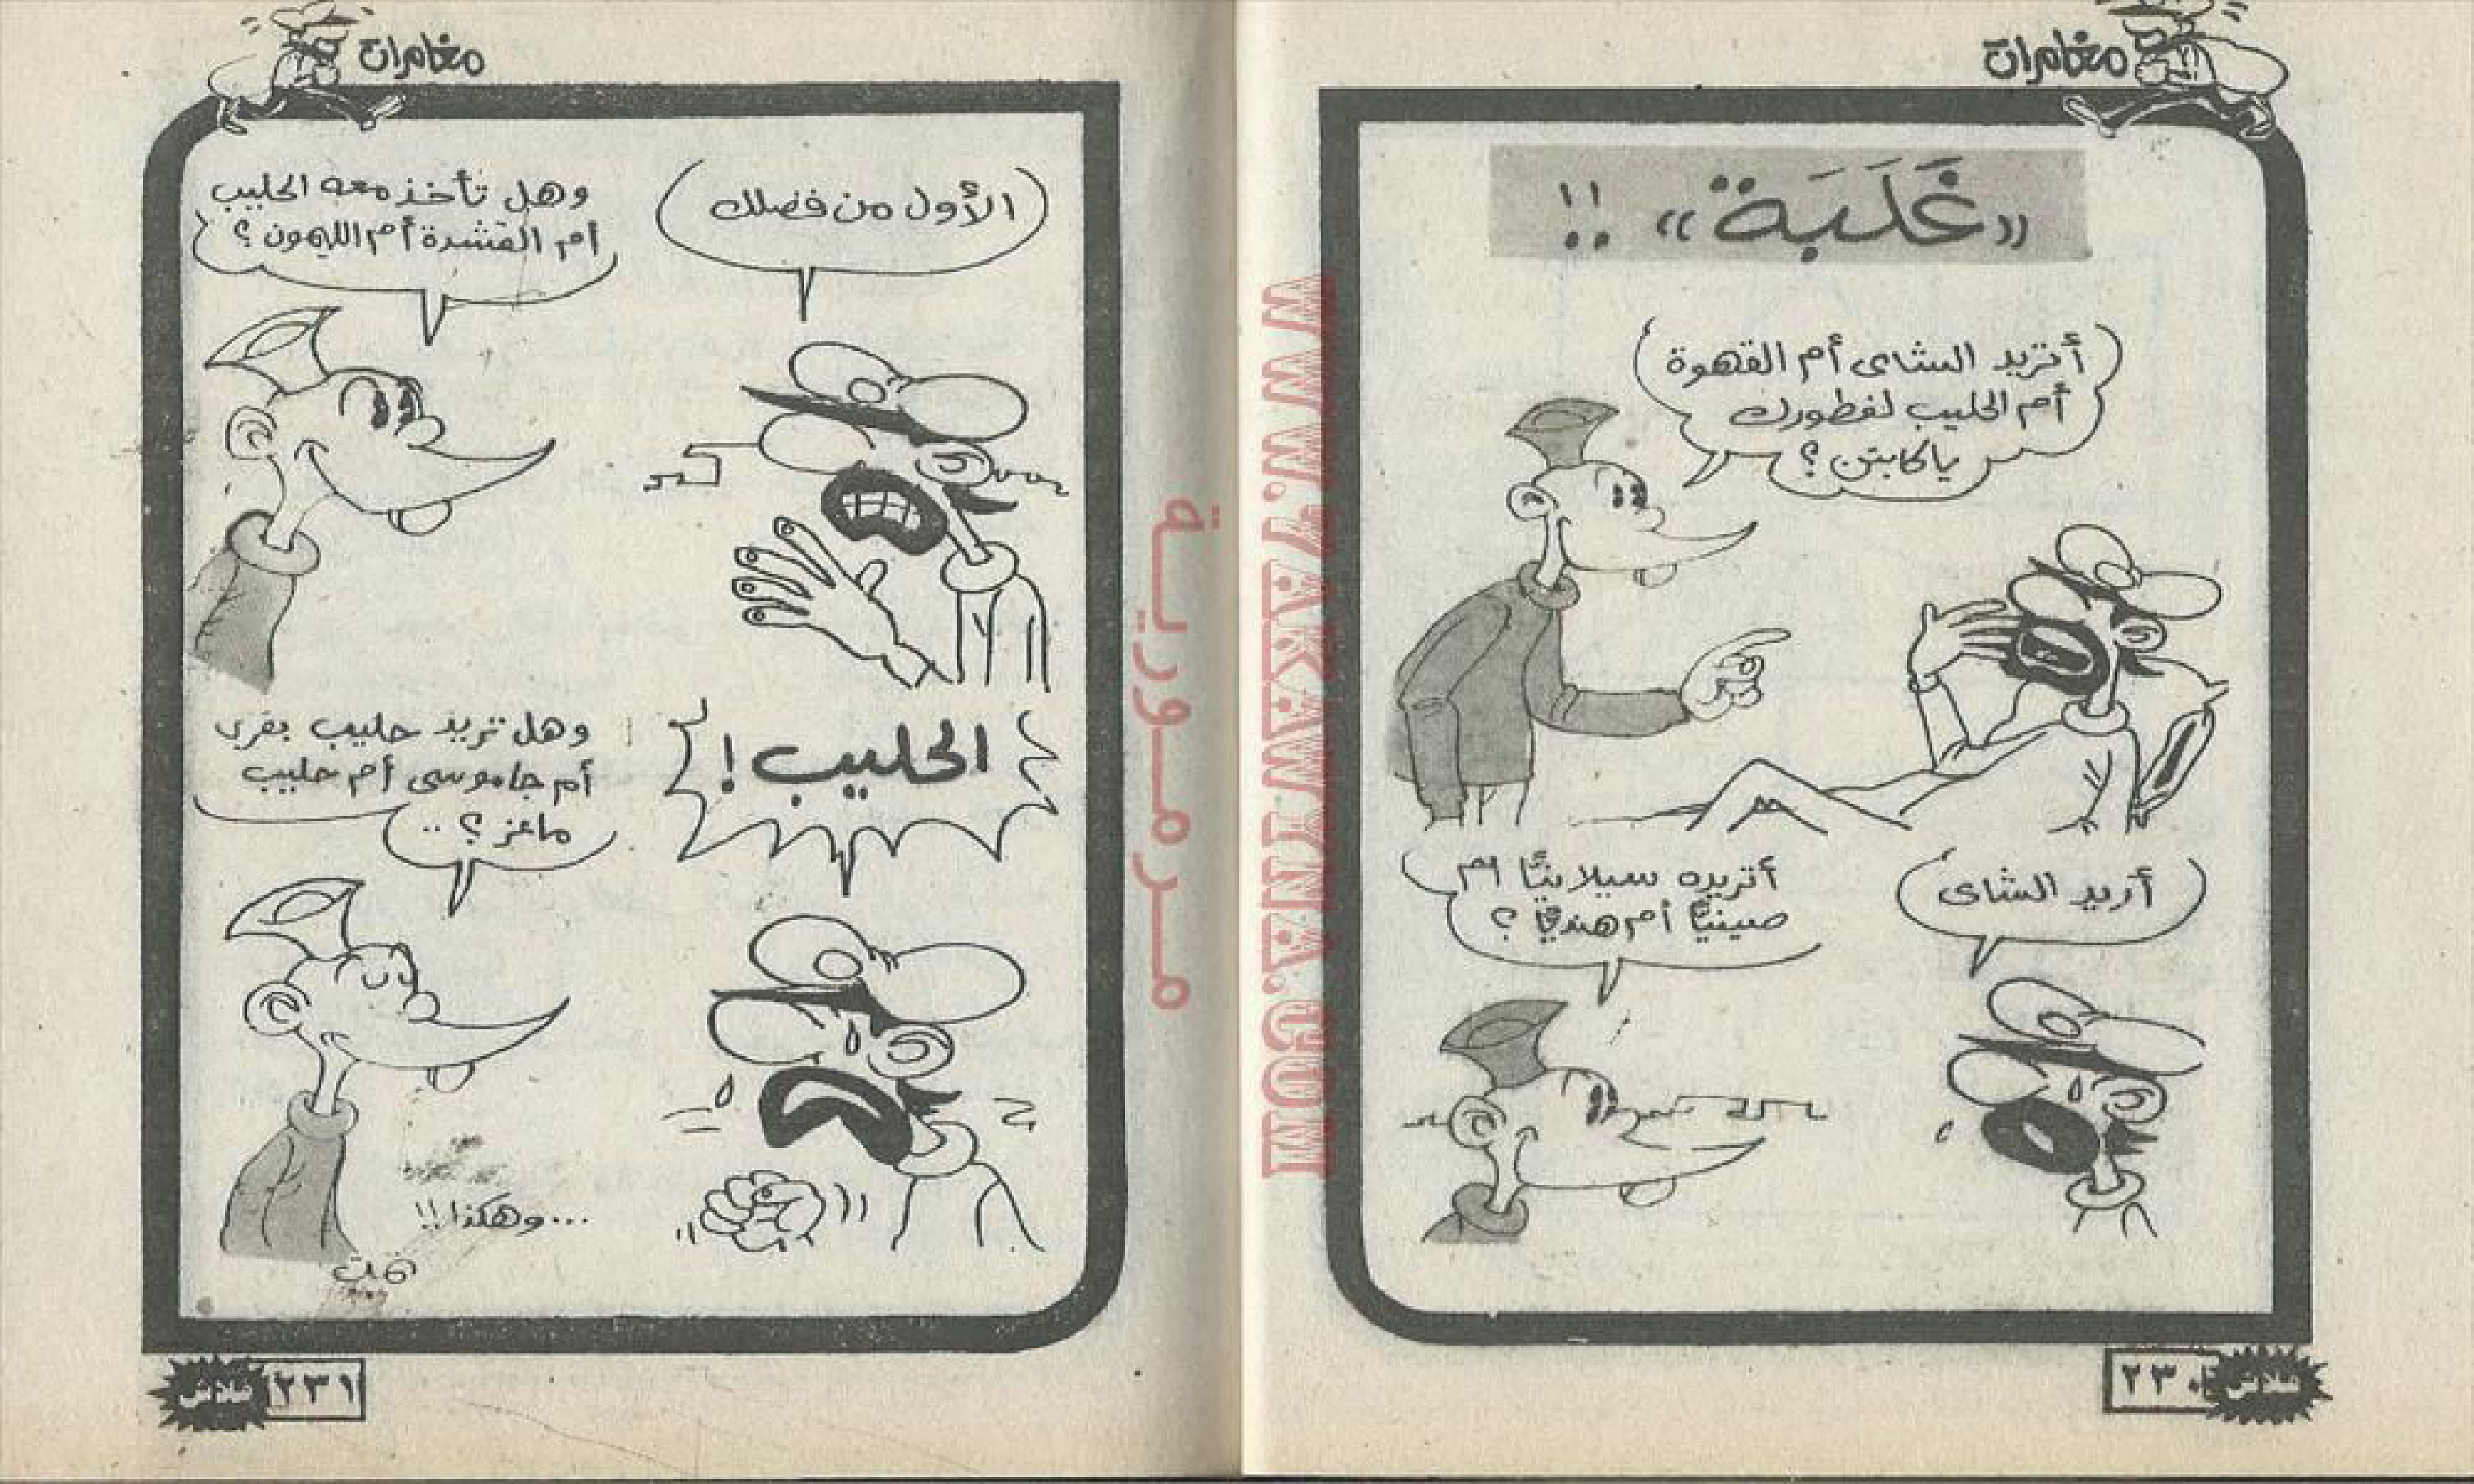 مغامرات
«غَلَبَة» !!
أتريد الشاى أم القهوة
أم الحليب لفطورك
ياكابتن ؟
أريد الشاى
أتريده سيلانيًا أم
صينيًا أم هنديًا ؟
٢٣٠
فلاش
مغامرات
الأول من فضلك
وهل تأخذ معه الحليب
أم القشدة أم الليمون ؟
الحليب !
وهل تريد حليب بقرى
أم جاموسى أم حليب
ماعز ؟ ..
...وهكذا !!
تمت
٢٣١
فلاش
مرمورية
WWW.ARABWINMEA.COM